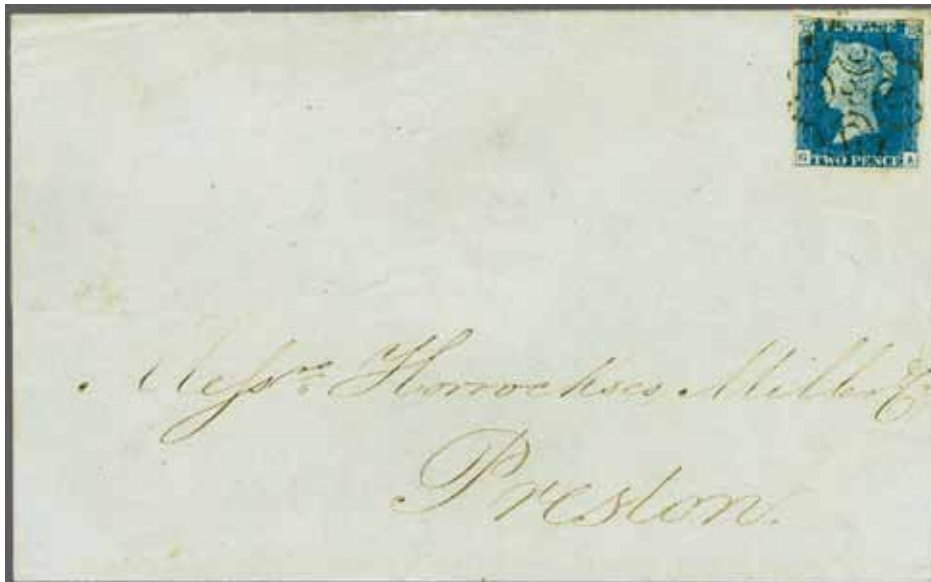 POSTAGE
TWO PENCE
G A
Messrs. Horrockses Miller & Co
Preston.